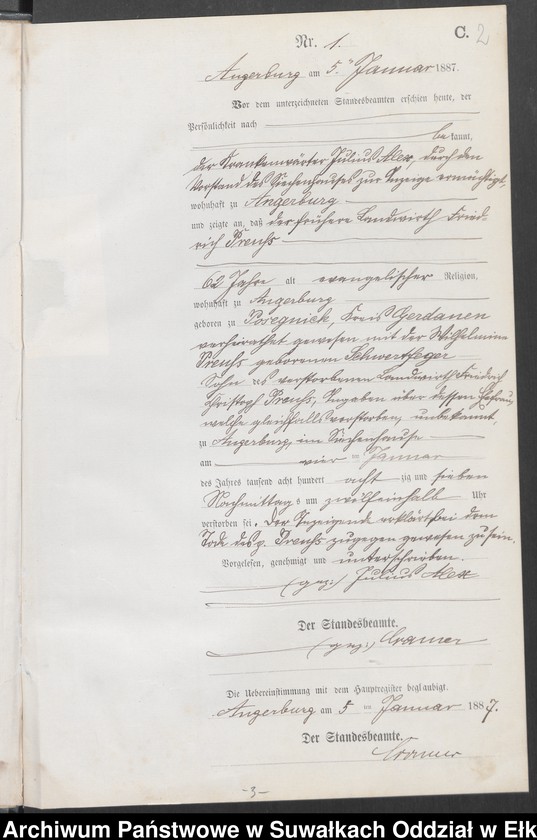 C. 2
Nr. 1.
Angerburg am 5. Januar 1887.
Vor dem unterzeichneten Standesbeamten erschien heute, der
Persönlichkeit nach
bekannt,
der Krankenwärter Julius Alex, durch den
Vorstand des Siechenhauses zur Anzeige ermächtigt,
wohnhaft zu Angerburg
und zeigte an, daß der frühere Landwirth Fried-
rich Preuß
62 Jahre alt evangelischer Religion,
wohnhaft zu Angerburg
geboren zu Posegnick, Kreis Gerdauen
verheirathet gewesen mit der Wilhelmine
Preuß geborenen Schwertfeger
Sohn des verstorbenen Landwirth Friedrich
Christoph Preuß, Angaben über dessen Ehefrau,
welche gleichfalls verstorben, unbekannt,
zu Angerburg, im Siechenhause
am vier ten Januar
des Jahres tausend acht hundert acht zig und sieben
Nachmittags um zwölfeinhalb Uhr
verstorben sei. Der Anzeigende erklärt bei dem
Tode des p. Preuß zugegen gewesen zu sein.
Vorgelesen, genehmigt und unterschrieben
(gez.) Julius Alex
Der Standesbeamte.
(gez.) Cramer
Die Uebereinstimmung mit dem Hauptregister beglaubigt.
Angerburg am 5 ten Januar 1887.
Der Standesbeamte.
Cramer
-3-
Archiwum Państwowe w Suwałkach Oddział w Ełk